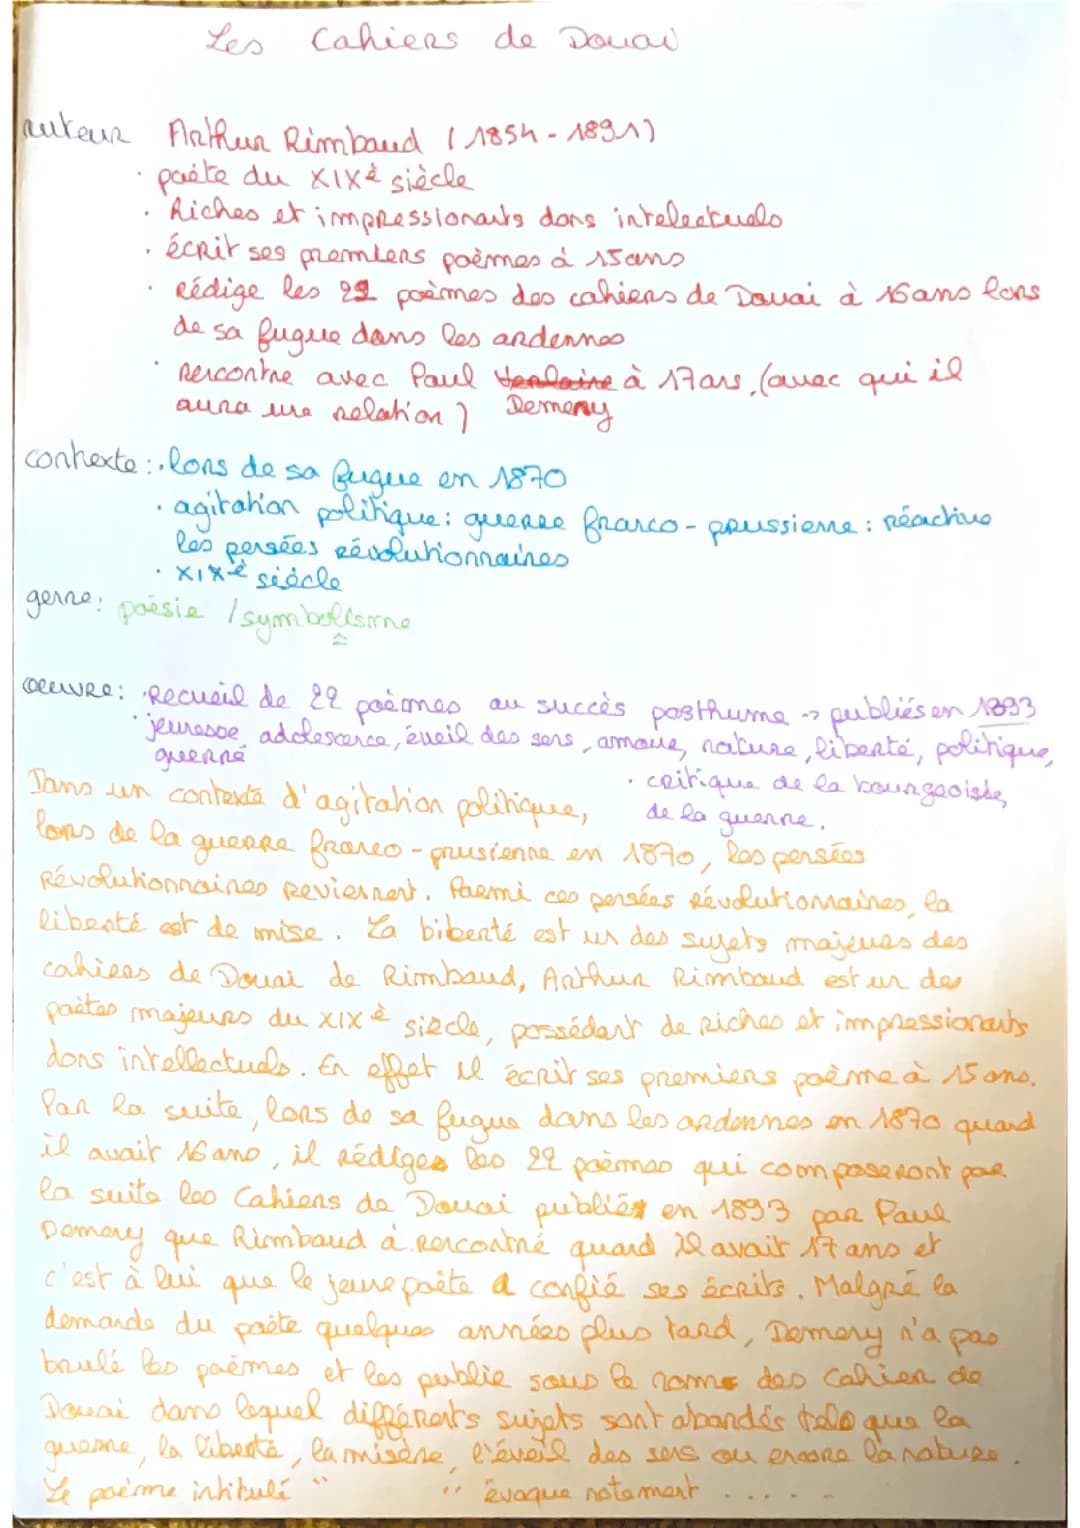 Les Cahiers de Douai
auteur Arthur Rimbaud (1854-1891)
· poète du XIXè siècle
· Riches et impressionants dons intelectuels
· écrit ses premiers poèmes à 15ans
· Rédige les 22 poèmes des cahiers de Douai à 16ans lors
de sa fugue dans les ardennes
· Rencontre avec Paul Verlaine à 17ans, (avec qui il
aura une relation) Demeny
contexte: · lors de sa fugue en 1870
· agitation politique: guerre franco-prussienne: réactive
les pensées révolutionnaires
· XIXè siècle
genre: poésie / symbolisme
oeuvre: · Recueil de 22 poèmes au succès posthume -> publiés en 1893
· jeunesse adolescence, éveil des sens, amour, nature, liberté, politique,
guerre
· critique de la bourgeoisie,
de la guerre.
Dans un contexte d'agitation politique,
lors de la guerre franco-prusienne en 1870, les pensées
Révolutionnaires reviennent. Parmi ces pensées révolutionnaires, la
liberté est de mise. La biberté est un des sujets majeurs des
cahiers de Douai de Rimbaud, Arthur Rimbaud est un des
poètes majeurs du XIXè siècle, possédant de riches et impressionants
dons intellectuels. En effet il écrit ses premiers poème à 15 ans.
Par la suite, lors de sa fugue dans les ardennes en 1870 quand
il avait 16 ans, il rédiges les 22 poèmes qui composeront par
la suite les Cahiers de Douai publiés en 1893 par Paul
Demeny que Rimbaud à rencontré quand il avait 17 ans et
c'est à lui que le jeune poète a confié ses écrits. Malgré la
demande du poète quelques années plus tard, Demeny n'a pas
brulé les poèmes et les publie sous le nome des Cahier de
Douai dans lequel différents sujets sont abordés tels que la
guerre, la liberté, la misère, l'éveil des sens ou encore la nature.
Le poème intitulé " " évoque notament .....